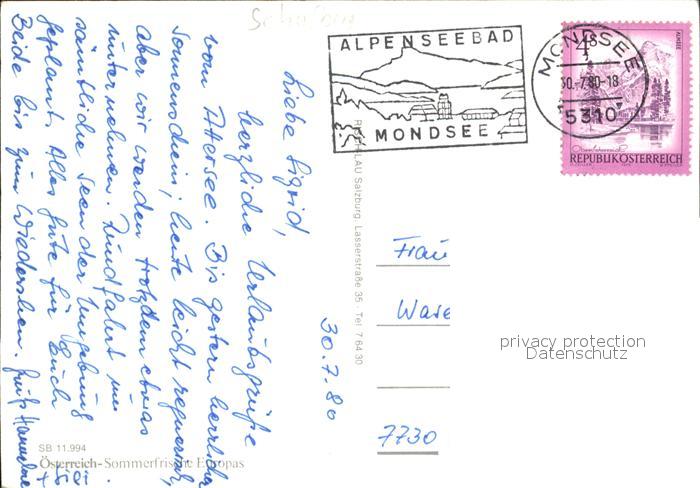 Schafberg
ALPENSEEBAD
MONDSEE
MONDSEE
30.-7.80-18
5310
4 S
ALMSEE
REPUBLIK ÖSTERREICH
30.7.80
Liebe Sigrid,
herzliche Urlaubsgrüße
vom Attersee. Bis gestern herrlicher
Sonnenschein, heute leicht regnerisch,
aber wir werden trotzdem etwas
unternehmen. Rundfahrt um
sämtliche Seen der Umgebung
geplant. Alles Gute für Euch
Beide bis zum Wiedersehen.
Lasserstraße 35 · Tel 7 64 30
Salzburg
Frau
7730
SB 11.994
Österreich-Sommerfrische Europas
privacy protection
Datenschutz